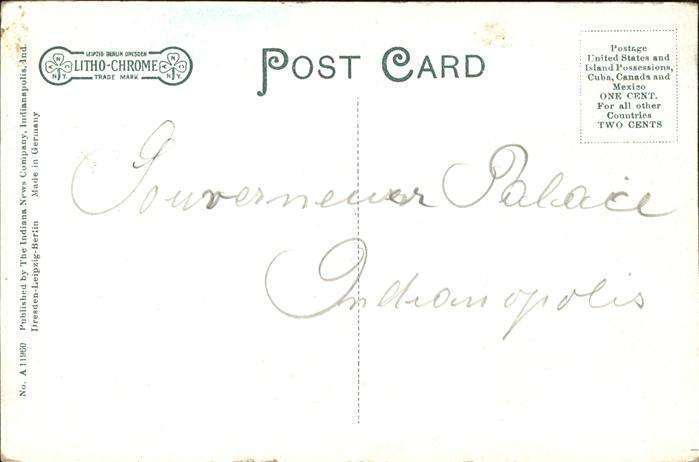 LEIPZIG BERLIN DRESDEN
LITHO-CHROME
TRADE MARK
N.Y.
N.Y.
POST CARD
Postage
United States and
Island Possessions,
Cuba, Canada and
Mexico
ONE CENT.
For all other
Countries
TWO CENTS
Gouverneur Palaice
Indianopolis
No. A 11960 Published by The Indiana News Company, Indianapolis, Ind.
Dresden-Leipzig-Berlin Made in Germany